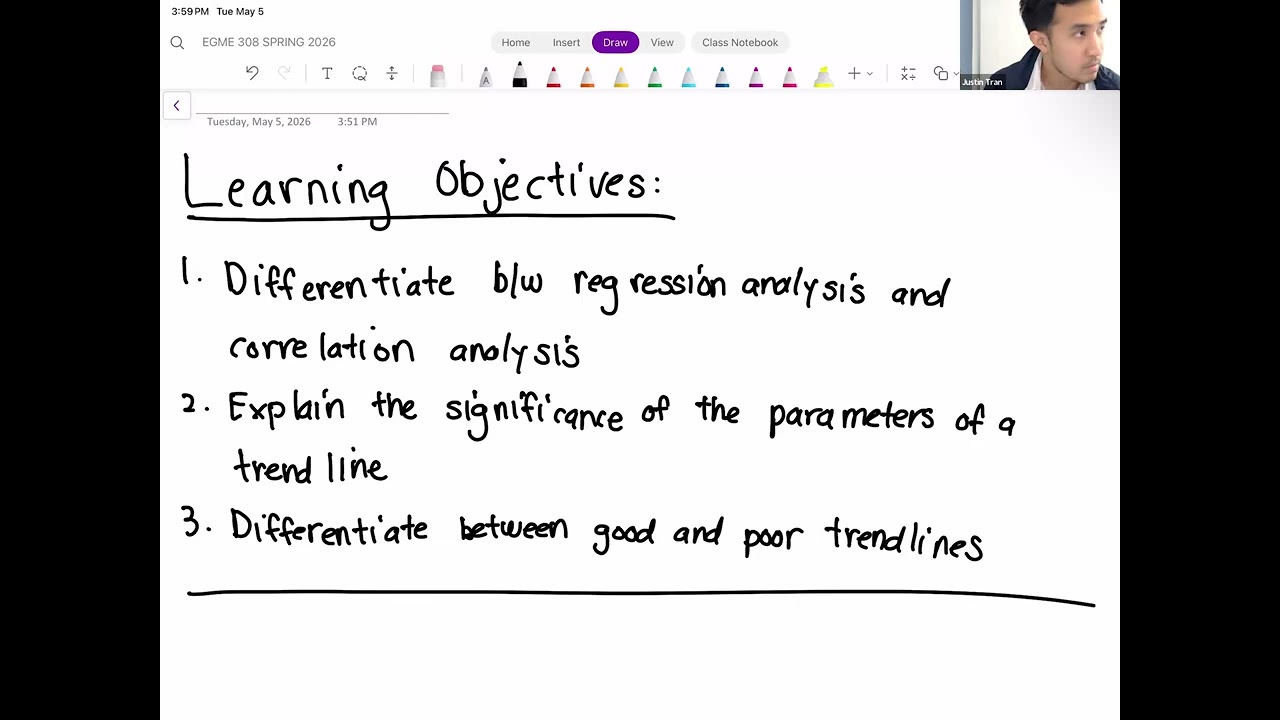 3:59 PM Tue May 5
EGME 308 SPRING 2026
Home Insert Draw View Class Notebook
T A
Justin Tran
Tuesday, May 5, 2026 3:51 PM
Learning Objectives:
1. Differentiate b/w regression analysis and
correlation analysis
2. Explain the significance of the parameters of a
trend line
3. Differentiate between good and poor trendlines